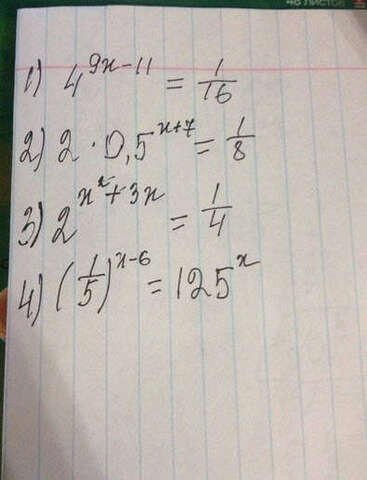 48 ЛИСТОВ
1) 4^{9x-11} = \frac{1}{16}
2) 2 · 0,5^{x+7} = \frac{1}{8}
3) 2^{x^2+3x} = \frac{1}{4}
4) (\frac{1}{5})^{x-6} = 125^x